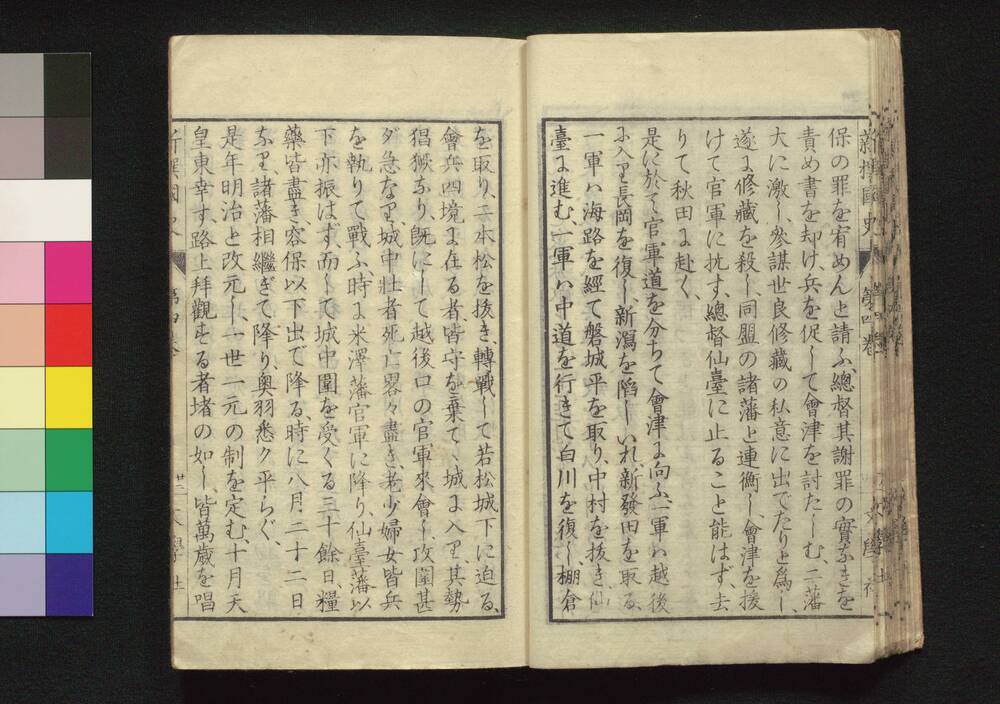 新撰國史 第四卷 文學社
保の罪を宥めんと請ふ、總督其謝罪の實なきを
責め書を却け、兵を促して會津を討たしむ、二藩
大に激し、參謀世良修藏の私意に出でたりと爲し、
遂に修藏を殺し、同盟の諸藩と連衡し、會津を援
けて官軍に抗す、總督仙臺に止ること能はず、去
りて秋田に赴く、
是に於て官軍道を分ちて會津に向ふ、一軍ハ越後
に入り長岡を復し、新瀉を陷しいれ、新發田を取る、
一軍ハ海路を經て磐城平を取り、中村を抜き、仙
臺に進む、一軍ハ中道を行きて白川を復し、棚倉
を取り、二本松を抜き、轉戰して若松城下に迫る、
會兵四境に在る者皆守を棄てゝ城に入り、其勢
猖獗なり、既にして越後口の官軍來會し、攻圍甚
ダ急なり、城中壯者死亡畧々盡き、老少婦女皆兵
を執りて戰ふ、時に米澤藩官軍に降り、仙臺藩以
下亦振はず、而して城中圍を受くる三十餘日、糧
藥皆盡き、容保以下出でゝ降る、時に八月二十二日
なり、諸藩相繼ぎて降り、奥羽悉ク平らぐ、
是年明治と改元し、一世一元の制を定む、十月天
皇東幸す、路上拜觀せる者堵の如し、皆萬歳を唱
新撰國史 第四卷 廿二 文學社